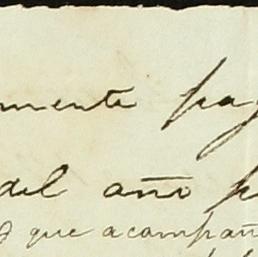 mente pag
del año p
que acompañ